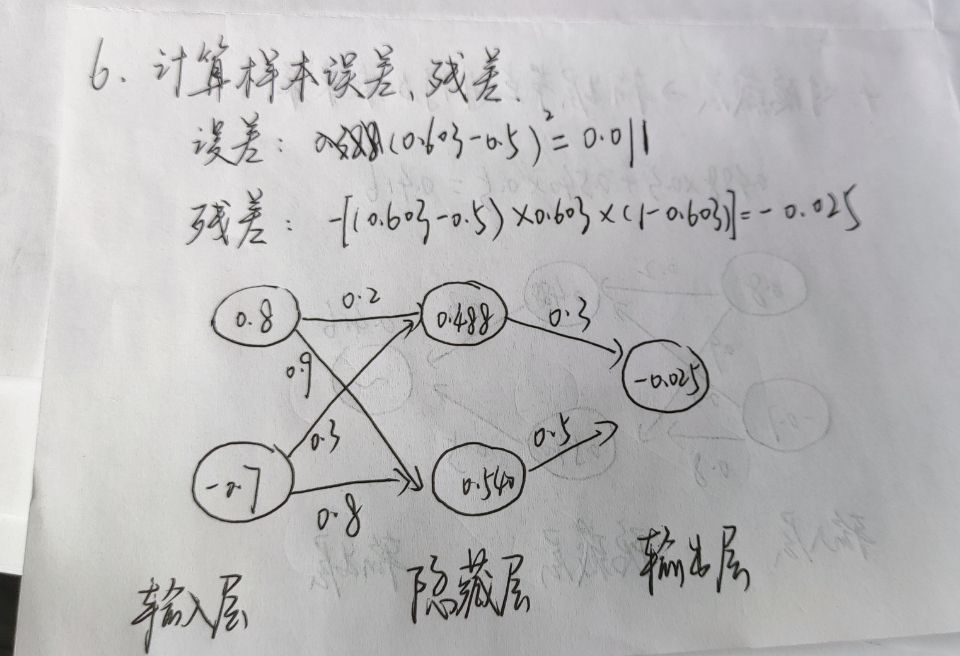 6. 计算样本误差、残差.
误差: (0.603-0.5)²=0.011
残差: -[(0.603-0.5)×0.603×(1-0.603)]=-0.025
0.8 0.2 0.488 0.3
0.9 -0.025
-0.7 0.3 0.540 0.5
0.8
输入层 隐藏层 输出层